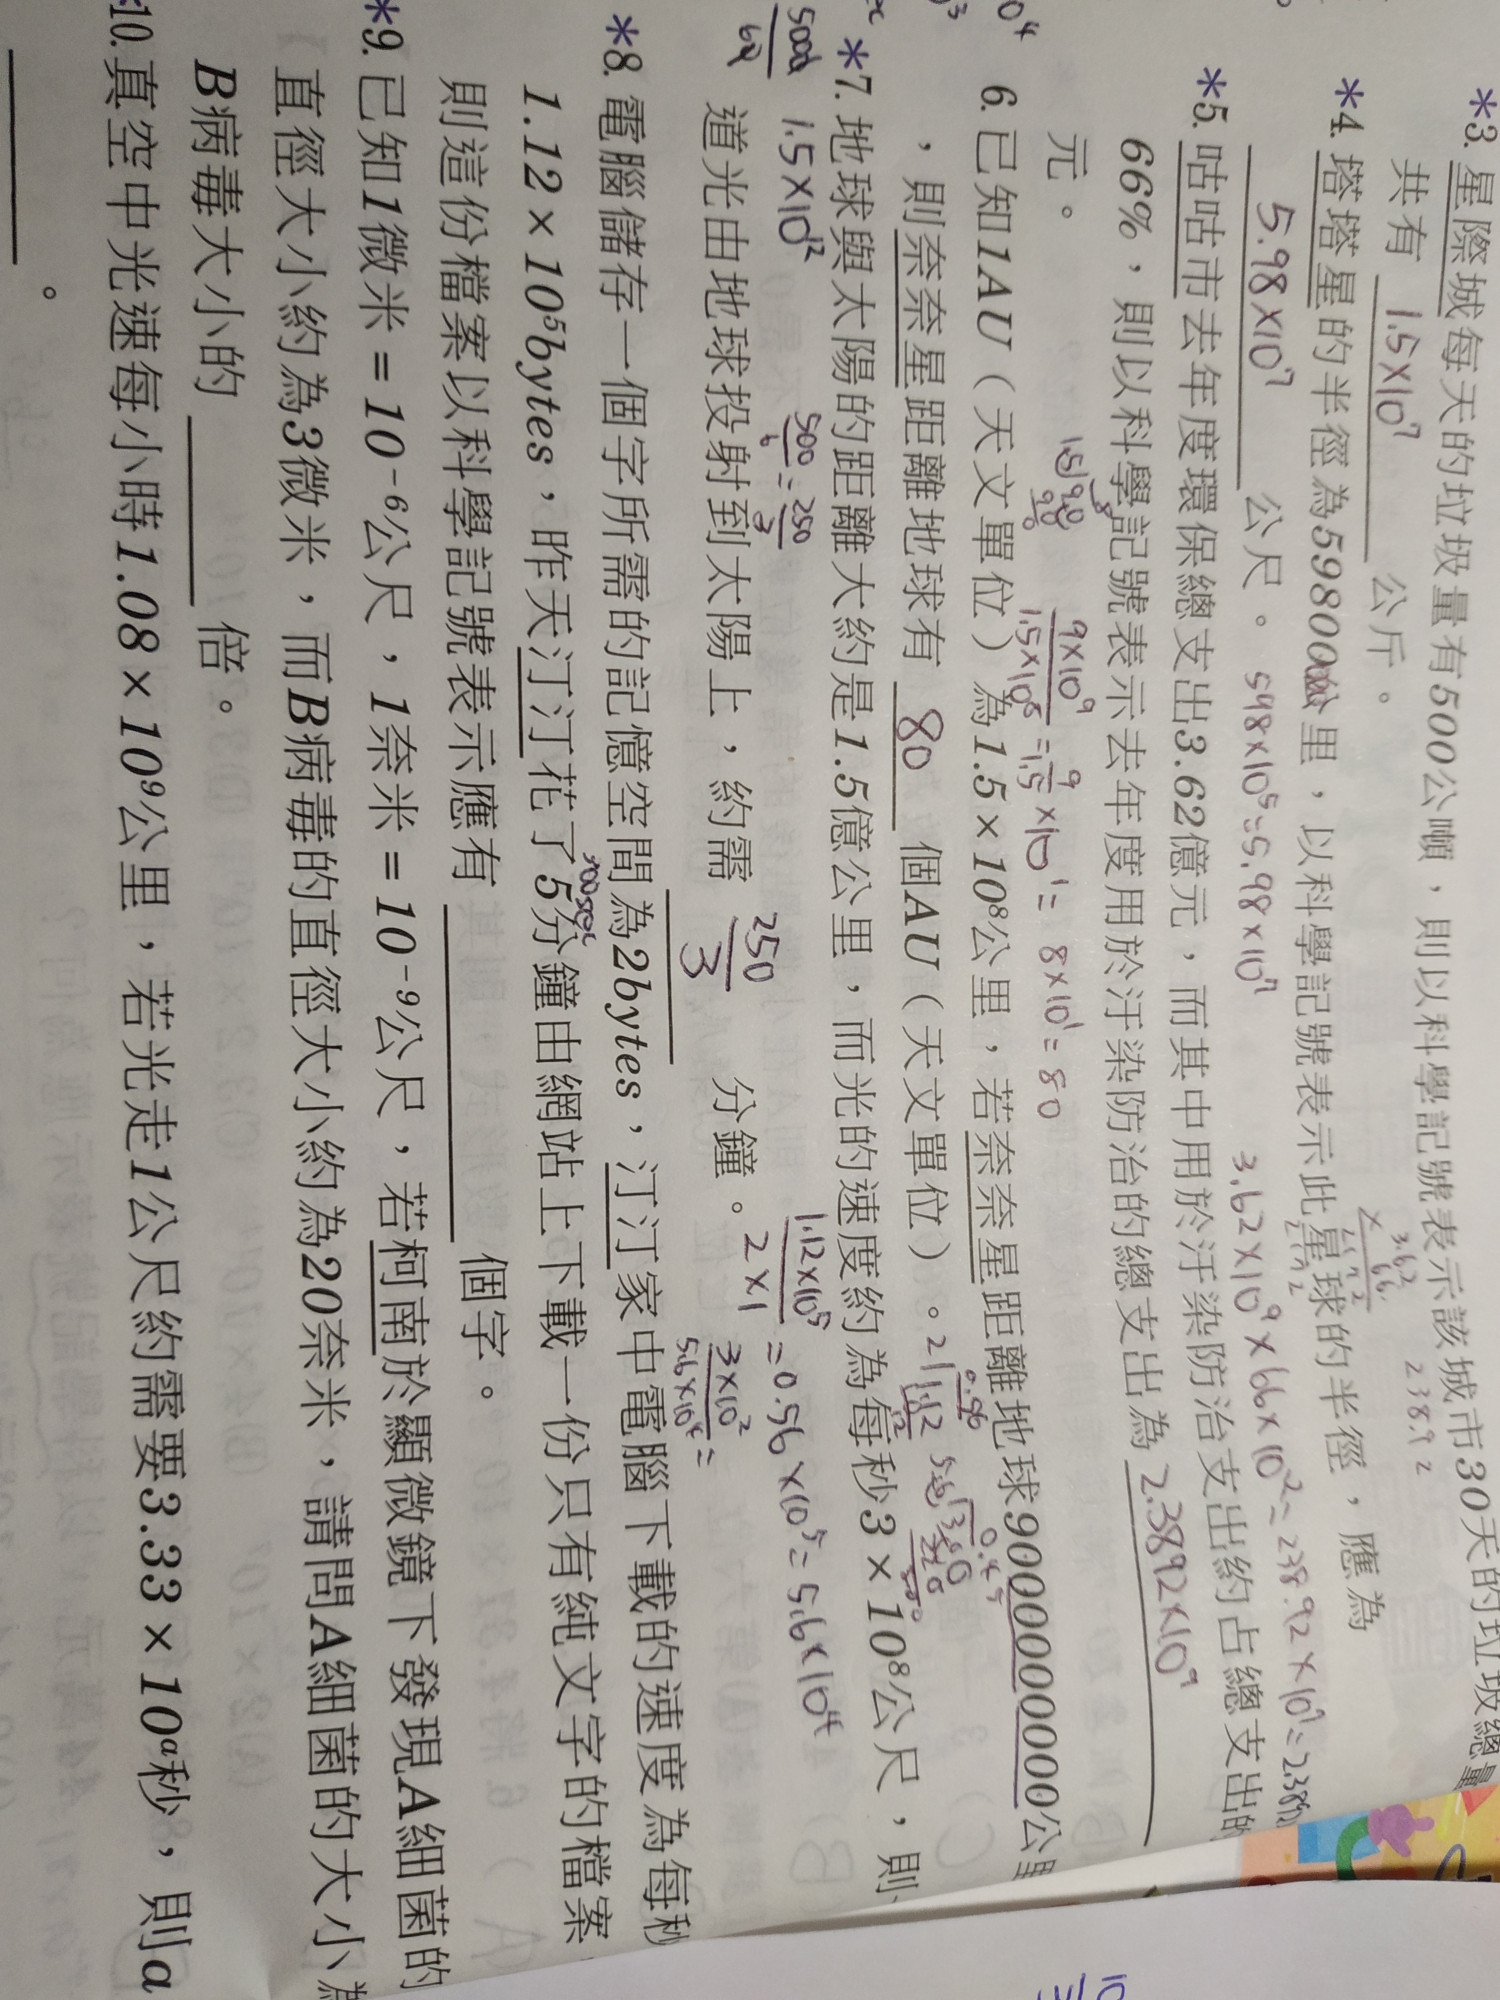 *3.星際城每天的垃圾量有500公噸，則以科學記號表示該城市30天的垃圾總量
共有 1.5×10⁷ 公斤。
*4.塔塔星的半徑為59800公里，以科學記號表示此星球的半徑，應為
5.98×10⁷ 公尺。 598×10⁵=5.98×10⁷
3.62×10⁹×66×10²=238.92×10⁷=2.3892
*5.咕咕市去年度環保總支出3.62億元，而其中用於汙染防治支出約占總支出的
66%，則以科學記號表示去年度用於汙染防治的總支出為 2.3892×10⁹
元。
9×10⁹/1.5×10⁸=9/1.5×10¹=8×10¹=80
6.已知1AU（天文單位）為1.5×10⁸公里，若奈奈星距離地球9000000000公里
，則奈奈星距離地球有 80 個AU（天文單位）。
*7.地球與太陽的距離大約是1.5億公里，而光的速度約為每秒3×10⁸公尺，則
1.5×10¹² 500/6=250/3
1.12×10⁵/2×1=0.56×10⁵=5.6×10⁴
道光由地球投射到太陽上，約需 250/3 分鐘。
3×10²/5.6×10⁴=
*8.電腦儲存一個字所需的記憶空間為2bytes，汀汀家中電腦下載的速度為每秒
1.12×10⁵bytes，昨天汀汀花了5分鐘由網站上下載一份只有純文字的檔案
則這份檔案以科學記號表示應有 個字。
*9.已知1微米=10⁻⁶公尺，1奈米=10⁻⁹公尺，若柯南於顯微鏡下發現A細菌的
直徑大小約為3微米，而B病毒的直徑大小約為20奈米，請問A細菌的大小為
B病毒大小的 倍。
*10.真空中光速每小時1.08×10⁹公里，若光走1公尺約需要3.33×10ᵃ秒，則a
。